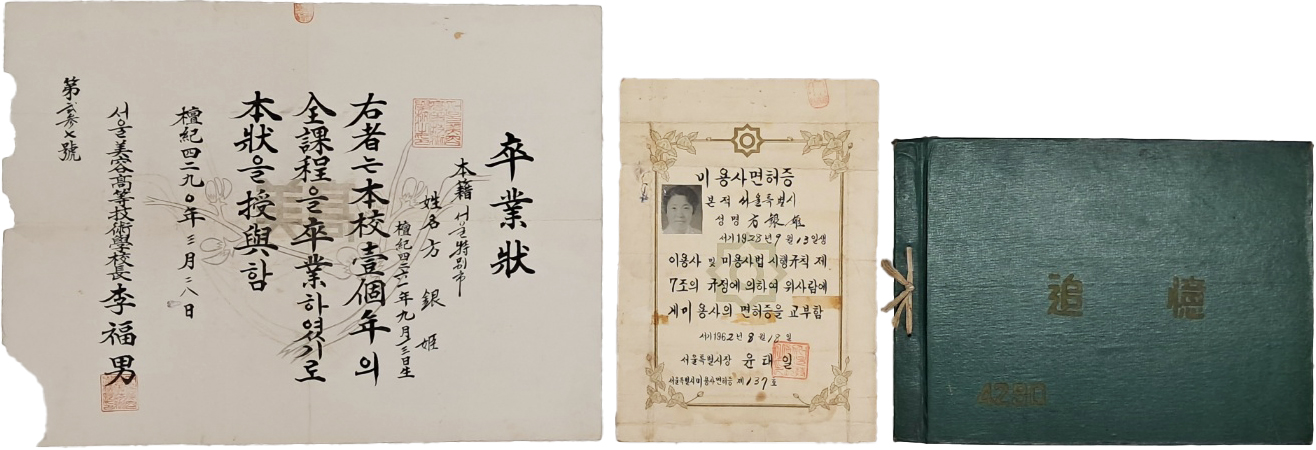 卒業狀
本籍 서울特別市
姓名 方 銀 姬
檀紀四二六一年九月十三日生
右者는本校壹個年의
全課程을卒業하였기로
本狀을授與함
檀紀四二九〇年三月二八日
서울美容高等技術學校長 李福男
第弐參七號
미용사면허증
본적 서울특별시
성명 方銀姬
서기1928년9월13일생
이용사 및 미용사법 시행규칙 제
7조의 규정에 의하여 위사람에
게미용사의 면허증을 교부함
서기1962년8월18일
서울특별시장 윤태일
서울특별시미용사면허증 제137호
追憶
4290